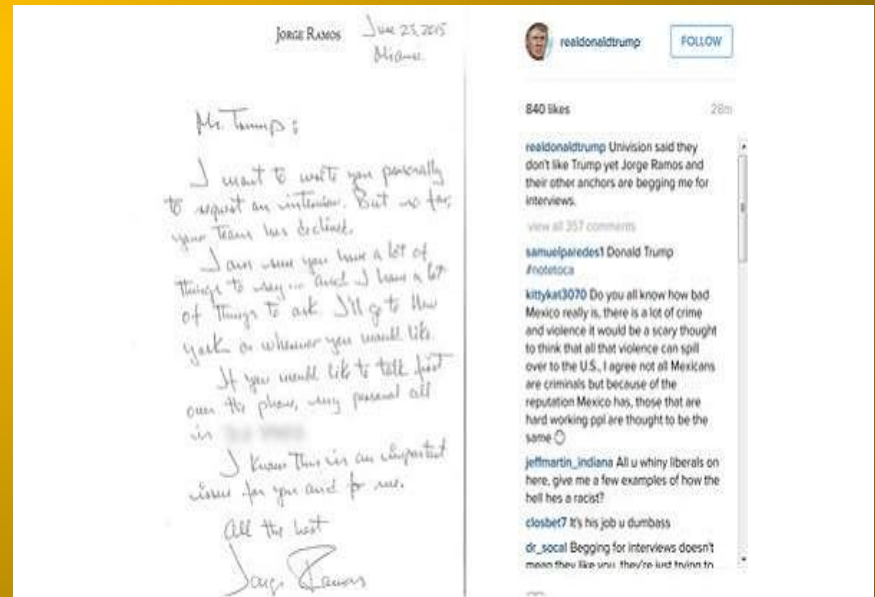 JORGE RAMOS
June 25, 2015
Miami
Mr. Trump:
I want to write you personally
to request an interview. But so far,
your team has declined.
I am sure you have a lot of
things to say... and I have a lot
of things to ask. I'll go to New
York or wherever you would like.
If you would like to talk first
over the phone, my personal cell
is
I know this is an important
issue for you and for me.
All the best
Jorge Ramos
realdonaldtrump
FOLLOW
840 likes
28m
realdonaldtrump Univision said they
don't like Trump yet Jorge Ramos and
their other anchors are begging me for
interviews.
view all 357 comments
samuelparedes1 Donald Trump
#notetoca
kittykat3070 Do you all know how bad
Mexico really is, there is a lot of crime
and violence it would be a scary thought
to think that all that violence can spill
over to the U.S., I agree not all Mexicans
are criminals but because of the
reputation Mexico has, those that are
hard working ppl are thought to be the
same
jeffmartin_indiana All u whiny liberals on
here, give me a few examples of how the
hell hes a racist?
closbet7 It's his job u dumbass
dr_socal Begging for interviews doesn't
mean they like you, they're just trying to